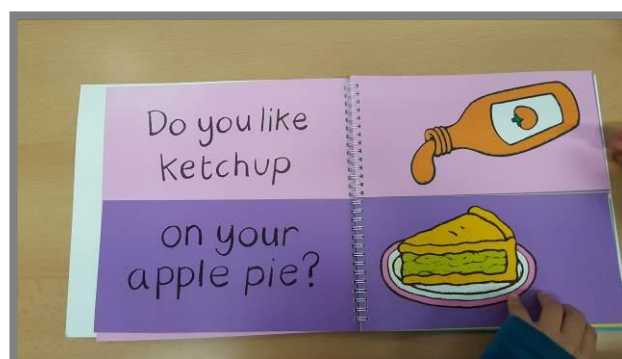 Do you like
ketchup
on your
apple pie?